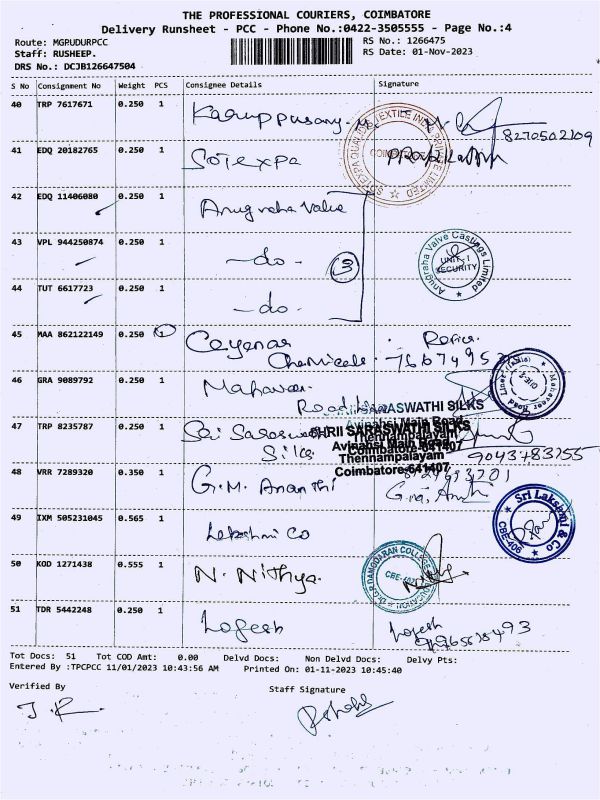 THE PROFESSIONAL COURIERS, COIMBATORE
Delivery Runsheet - PCC - Phone No.:0422-3505555 - Page No.:4
Route: MGPUDURPCC RS No.: 1266475
Staff: RUSHEEP. RS Date: 01-Nov-2023
DRS No.: DCJB126647504
S No Consignment No Weight PCS Consignee Details Signature
40 TRP 7617671 0.250 1 Karuppusamy.M
8270502109
41 EDQ 20182765 0.250 1 Sotexpa
COIMBATORE
42 EDQ 11406080 0.250 1 Anugraha Valve
43 VPL 944250874 0.250 1 -do- 3
Anugraha Valve Castings Limited
UNIT-I
SECURITY
44 TUT 6617723 0.250 1 -do-
45 MAA 862122149 0.250 1
Chemicals.
46 GRA 9089792 0.250 1
SHRII SARASWATHI SILKS
Avinashi Main Road
Thennampalayam
Coimbatore-641407
47 TRP 8235787 0.250 1 Sri Saraswathi
Silks
9043783255
48 VRR 7289320 0.350 1 G.M. Ananthi
49 IXM 505231045 0.565 1 Lakshmi Co
Sri Lakshmi & Co
CBE-406
50 KOD 1271438 0.555 1 N. Nithya.
51 TDR 5442248 0.250 1 Logesh Logesh
Tot Docs: 51 Tot COD Amt: 0.00 Delvd Docs: Non Delvd Docs: Delvy Pts:
Entered By :TPCPCC 11/01/2023 10:43:56 AM Printed On: 01-11-2023 10:45:40
Verified By Staff Signature